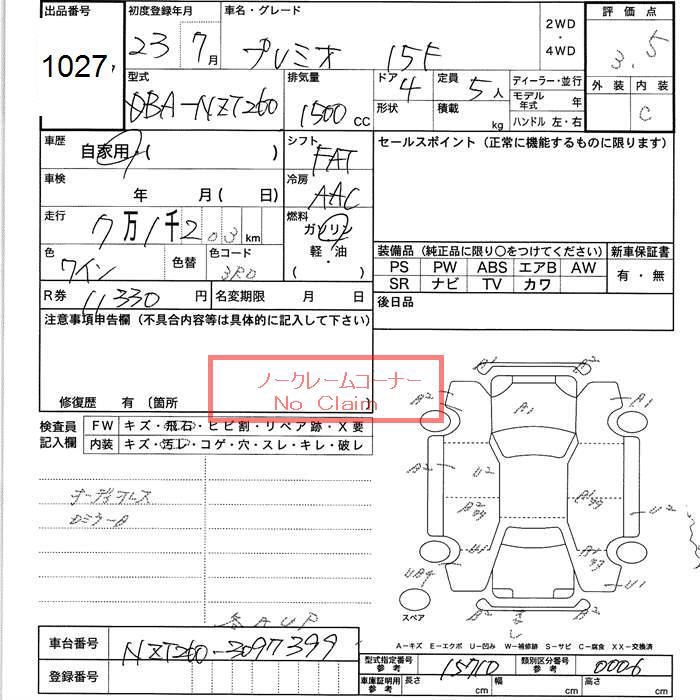 出品番号 初度登録年月 車名・グレード 2WD ・ 4WD 評価点
1027 23年 7月 プレミオ 15F 3.5
型式 排気量 ドア 4 定員 5人 ディーラー・並行 外装 内装
DBA-NZT260 1500 cc 形状 積載 kg モデル年式 年 C
ハンドル 左・右
車歴 自家用・( ) シフト FAT セールスポイント(正常に機能するものに限ります)
車検 年 月( 日) 冷房 AAC
走行 7万1千203 km 燃料 ガソリン 軽・油 ( )
装備品(純正品に限り○をつけてください) 新車保証書
色 ワイン 色替 色コード 3R0 PS PW ABS エアB AW 有・無
SR ナビ TV カワ
R券 11330円 名変期限 月 日 後日品
注意事項申告欄(不具合内容等は具体的に記入して下さい)
ノークレームコーナー
No Claim
修復歴 有〔箇所
検査員記入欄 FW キズ・飛石・ヒビ割・リペア跡・X要
内装 キズ・汚レ・コゲ・穴・スレ・キレ・破レ
A1 A2
A2 A1 A1
U2 U2
U2
U1
U1
オーディオレス
スペア
A-キズ E-エクボ U-凹み W-補修跡 S-サビ C-腐食 XX-交換済
車台番号 NZT260-3097399
型式指定番号 参考 15710 類別区分番号 参考 0006
登録番号 車庫証明用 参考 長さ cm 幅 cm 高さ cm